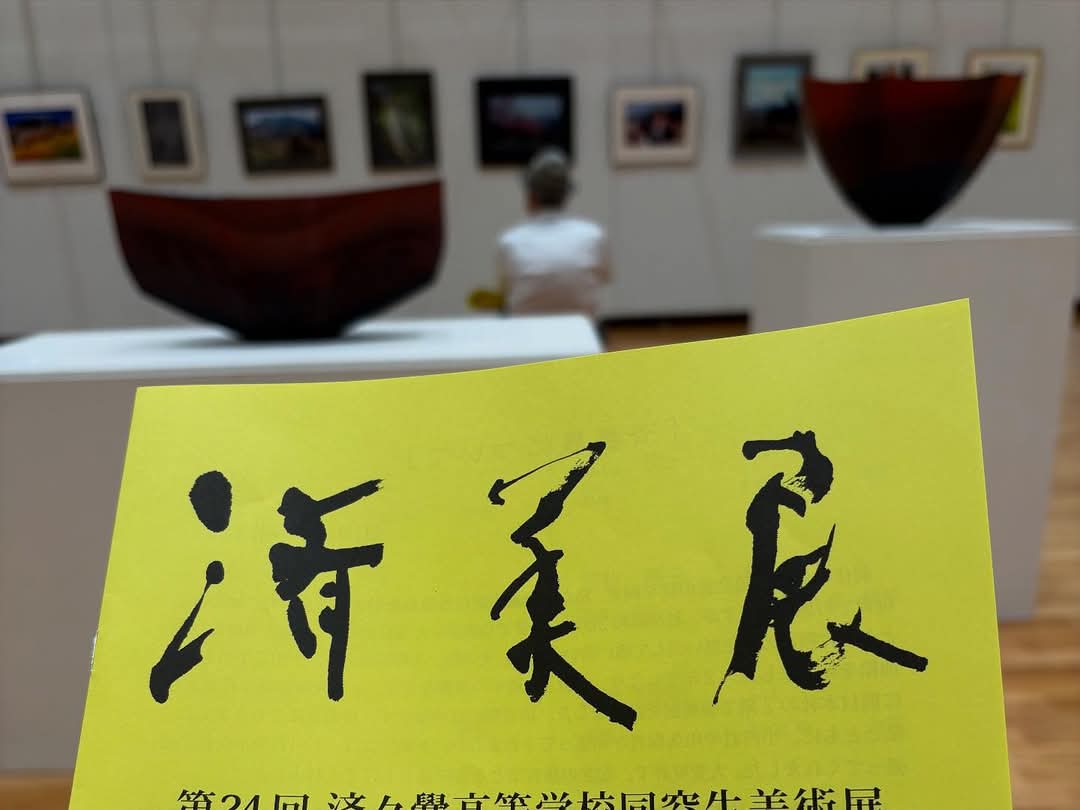 済美展
第24回 済々黌高等学校同窓生美術展